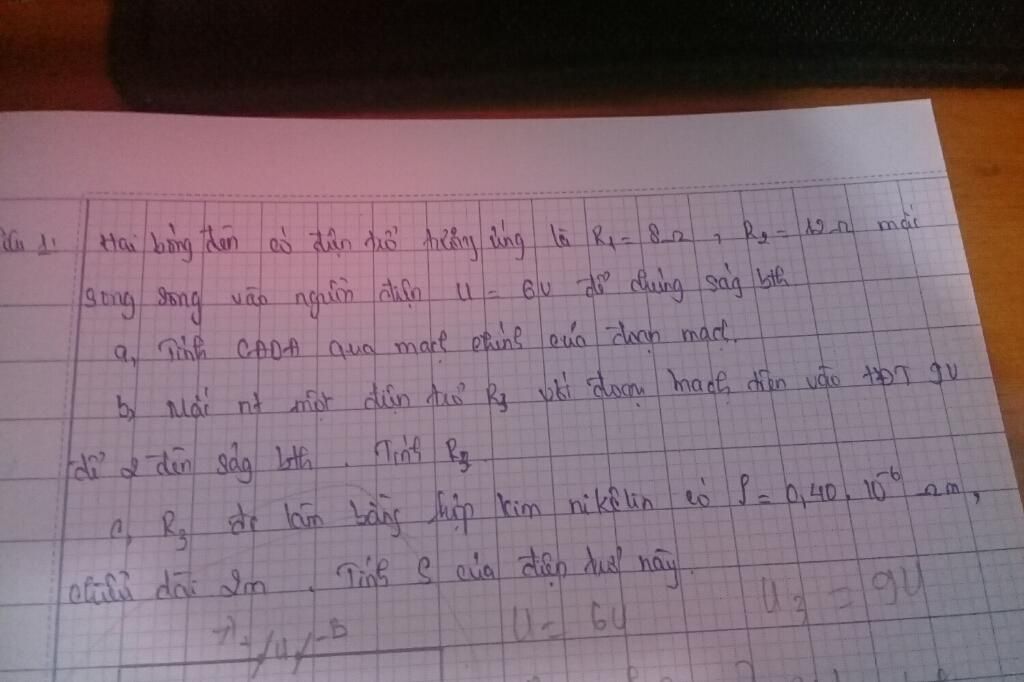 Câu 1: Hai bóng đèn có điện trở tương ứng là R₁ = 8Ω, R₂ = 12Ω mắc
song song vào nguồn điện U = 6V để chúng sáng bth
a, Tính CĐDĐ qua mạch chính của đoạn mạch.
b, Mắc nt một điện trở R₃ với đoạn mạch điện vào HĐT 9V
để 2 đèn sáng bth. Tính R₃
c, R₃ đc làm bằng hợp kim nikêlin có ρ = 0,40.10⁻⁶ Ωm,
chiều dài 2m. Tính S của điện trở này.
U = 6V U₃ = 9V